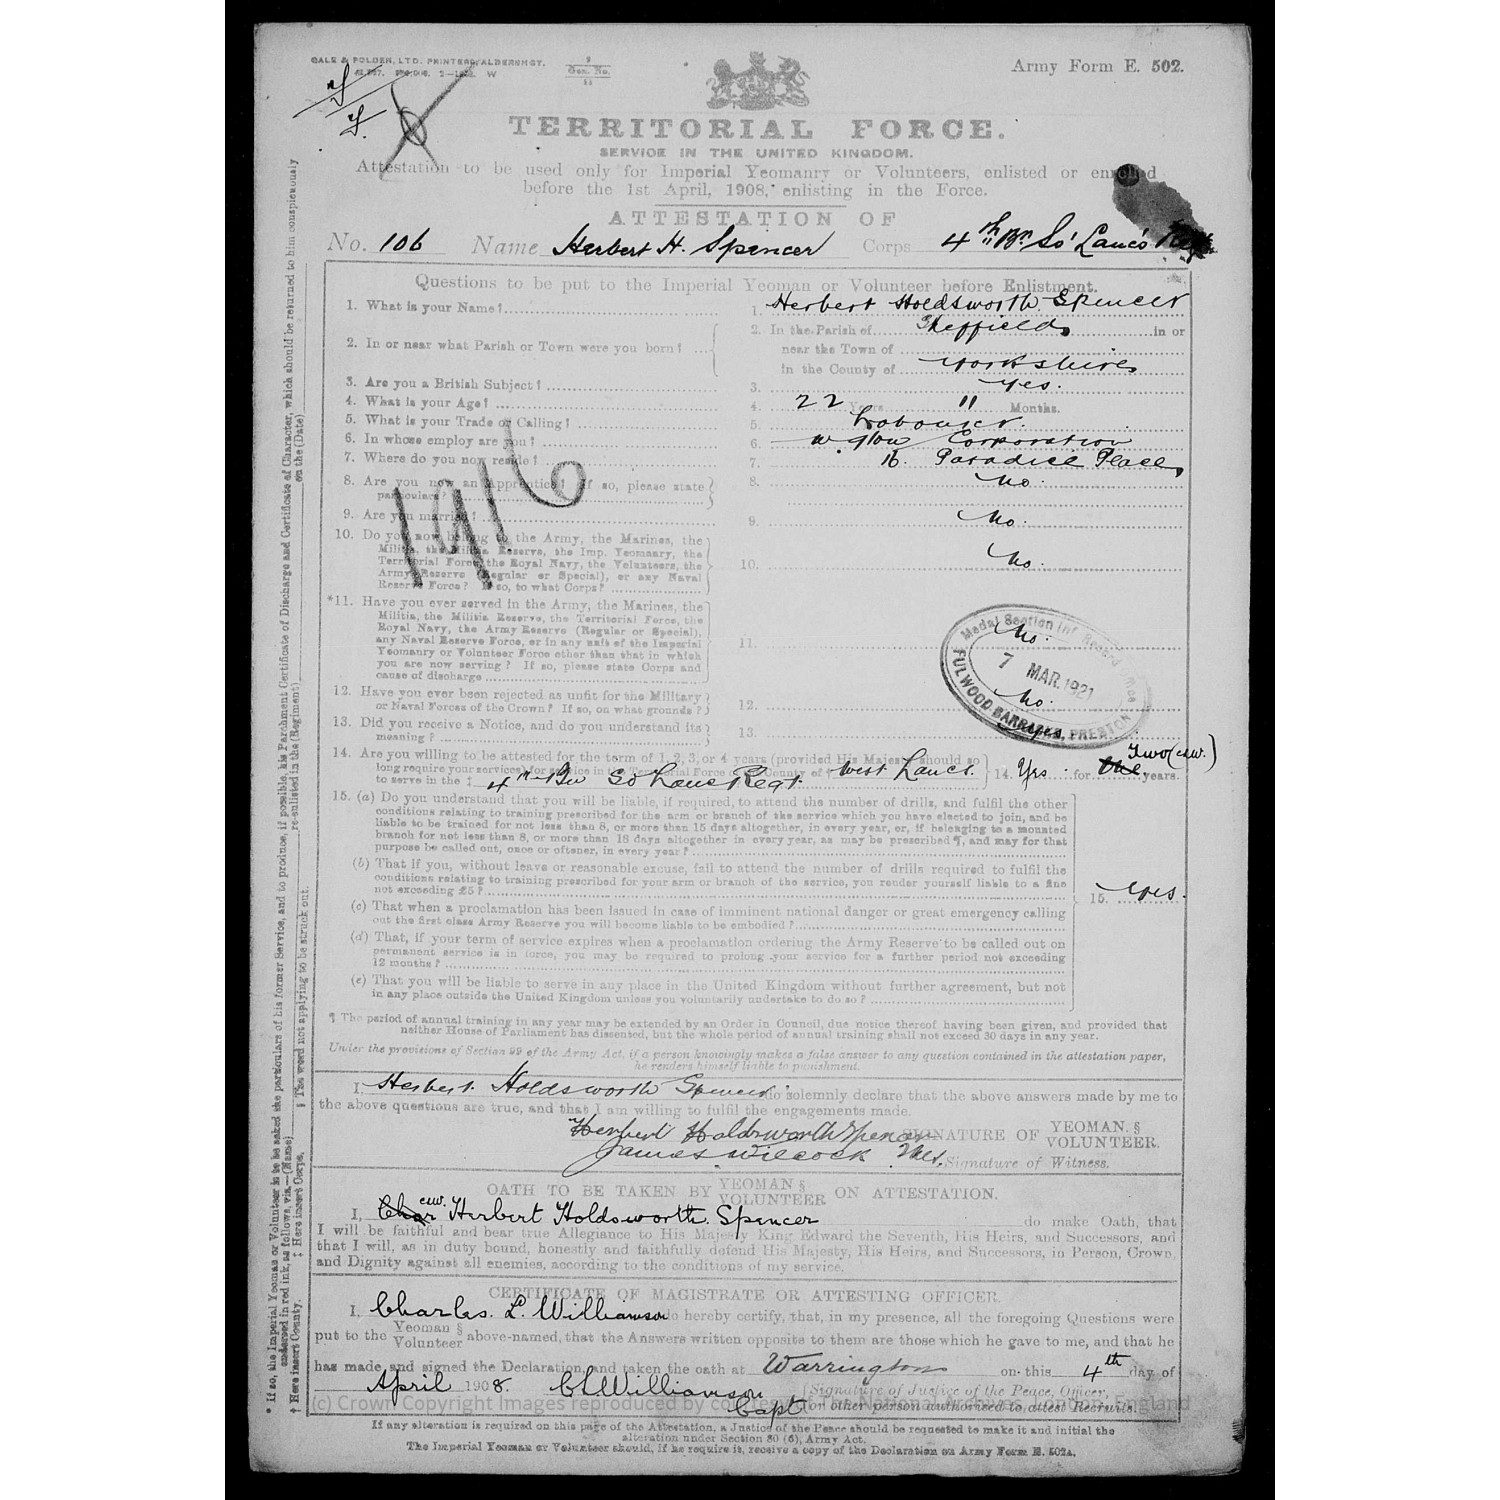 GALE & POLDEN, LTD. PRINTERS, ALDERSHOT.
Gen. No.
Army Form E. 502.
TERRITORIAL FORCE.
SERVICE IN THE UNITED KINGDOM.
Attestation to be used only for Imperial Yeomanry or Volunteers, enlisted or enrolled
before the 1st April, 1908, enlisting in the Force.
ATTESTATION OF
No. 106 Name Herbert H. Spencer Corps 4th Bn So' Lancs Regt
Questions to be put to the Imperial Yeoman or Volunteer before Enlistment.
1. What is your Name? 1. Herbert Holdsworth Spencer
2. In or near what Parish or Town were you born? 2. In the Parish of Sheffield in or
near the Town of
in the County of Yorkshire
3. Are you a British Subject? 3. Yes.
4. What is your Age? 4. 22 Years 11 Months.
5. What is your Trade or Calling? 5. Labourer.
6. In whose employ are you? 6. W.gton Corporation
7. Where do you now reside? 7. 16. Paradise Place
8. Are you now an Apprentice? If so, please state particulars? 8. No.
9. Are you married? 9. No.
10. Do you now belong to the Army, the Marines, the
Militia, the Militia Reserve, the Imp. Yeomanry, the
Territorial Force, the Royal Navy, the Volunteers, the
Army Reserve (Regular or Special), or any Naval
Reserve Force? If so, to what Corps? 10. No.
1916
*11. Have you ever served in the Army, the Marines, the
Militia, the Militia Reserve, the Territorial Force, the
Royal Navy, the Army Reserve (Regular or Special),
any Naval Reserve Force, or in any unit of the Imperial
Yeomanry or Volunteer Force other than that in which
you are now serving? If so, please state Corps and
cause of discharge 11. No.
Medal Section Inf. Record
7 MAR. 1921
FULWOOD BARRACKS, PRESTON
12. Have you ever been rejected as unfit for the Military
or Naval Forces of the Crown? If so, on what grounds? 12. No.
13. Did you receive a Notice, and do you understand its
meaning? 13. Yes
14. Are you willing to be attested for the term of 1, 2, 3, or 4 years (provided His Majesty should so
long require your services) for service in the Territorial Force of the County of † West Lancs.
to serve in the ‡ 4th Bn So Lanc Regt. 14. Yes. for One Two (CLW.) years.
15. (a) Do you understand that you will be liable, if required, to attend the number of drills, and fulfil the other
conditions relating to training prescribed for the arm or branch of the service which you have elected to join, and be
liable to be trained for not less than 8, or more than 15 days altogether, in every year, or, if belonging to a mounted
branch for not less than 8, or more than 18 days altogether in every year, as may be prescribed ¶, and may for that
purpose be called out, once or oftener, in every year?
(b) That if you, without leave or reasonable excuse, fail to attend the number of drills required to fulfil the
conditions relating to training prescribed for your arm or branch of the service, you render yourself liable to a fine
not exceeding £5?
15. Yes.
(c) That when a proclamation has been issued in case of imminent national danger or great emergency calling
out the first class Army Reserve you will become liable to be embodied?
(d) That, if your term of service expires when a proclamation ordering the Army Reserve to be called out on
permanent service is in force, you may be required to prolong your service for a further period not exceeding
12 months?
(e) That you will be liable to serve in any place in the United Kingdom without further agreement, but not
in any place outside the United Kingdom unless you voluntarily undertake to do so?
¶ The period of annual training in any year may be extended by an Order in Council, due notice thereof having been given, and provided that
neither House of Parliament has dissented, but the whole period of annual training shall not exceed 30 days in any year.
Under the provisions of Section 99 of the Army Act, if a person knowingly makes a false answer to any question contained in the attestation paper,
he renders himself liable to punishment.
I, Herbert Holdsworth Spencer do solemnly declare that the above answers made by me to
the above questions are true, and that I am willing to fulfil the engagements made.
Herbert Holdsworth Spencer SIGNATURE OF YEOMAN. § VOLUNTEER.
James Wilcock Signature of Witness.
OATH TO BE TAKEN BY YEOMAN § VOLUNTEER ON ATTESTATION.
I, Char CLW. Herbert Holdsworth. Spencer do make Oath, that
I will be faithful and bear true Allegiance to His Majesty King Edward the Seventh, His Heirs, and Successors, and
that I will, as in duty bound, honestly and faithfully defend His Majesty, His Heirs, and Successors, in Person, Crown,
and Dignity against all enemies, according to the conditions of my service.
CERTIFICATE OF MAGISTRATE OR ATTESTING OFFICER.
I, Charles. L. Williamson do hereby certify, that, in my presence, all the foregoing Questions were
put to the Yeoman § Volunteer above-named, that the Answers written opposite to them are those which he gave to me, and that he
has made and signed the Declaration, and taken the oath at Warrington on this 4th day of
April 1908. CLWilliamson Capt Signature of Justice of the Peace, Officer,
or other person authorised to attest Recruits.
(c) Crown Copyright Images reproduced by courtesy of The National Archives, London, England
If any alteration is required on this page of the Attestation, a Justice of the Peace should be requested to make it and initial the
alteration under Section 80 (6), Army Act.
The Imperial Yeoman or Volunteer should, if he require it, receive a copy of the Declaration on Army Form E. 502A.
* If so, the Imperial Yeoman or Volunteer is to be asked the particulars of his former Service, and to produce, if possible, his Parchment Certificate of Discharge and Certificate of Character, which should be returned to him conspicuously
endorsed in red ink, as follows, viz.—(Name) re-enlisted in the (Regiment) on the (Date)
† Here insert County. ‡ Here insert Corps. § The word not applying to be struck out.